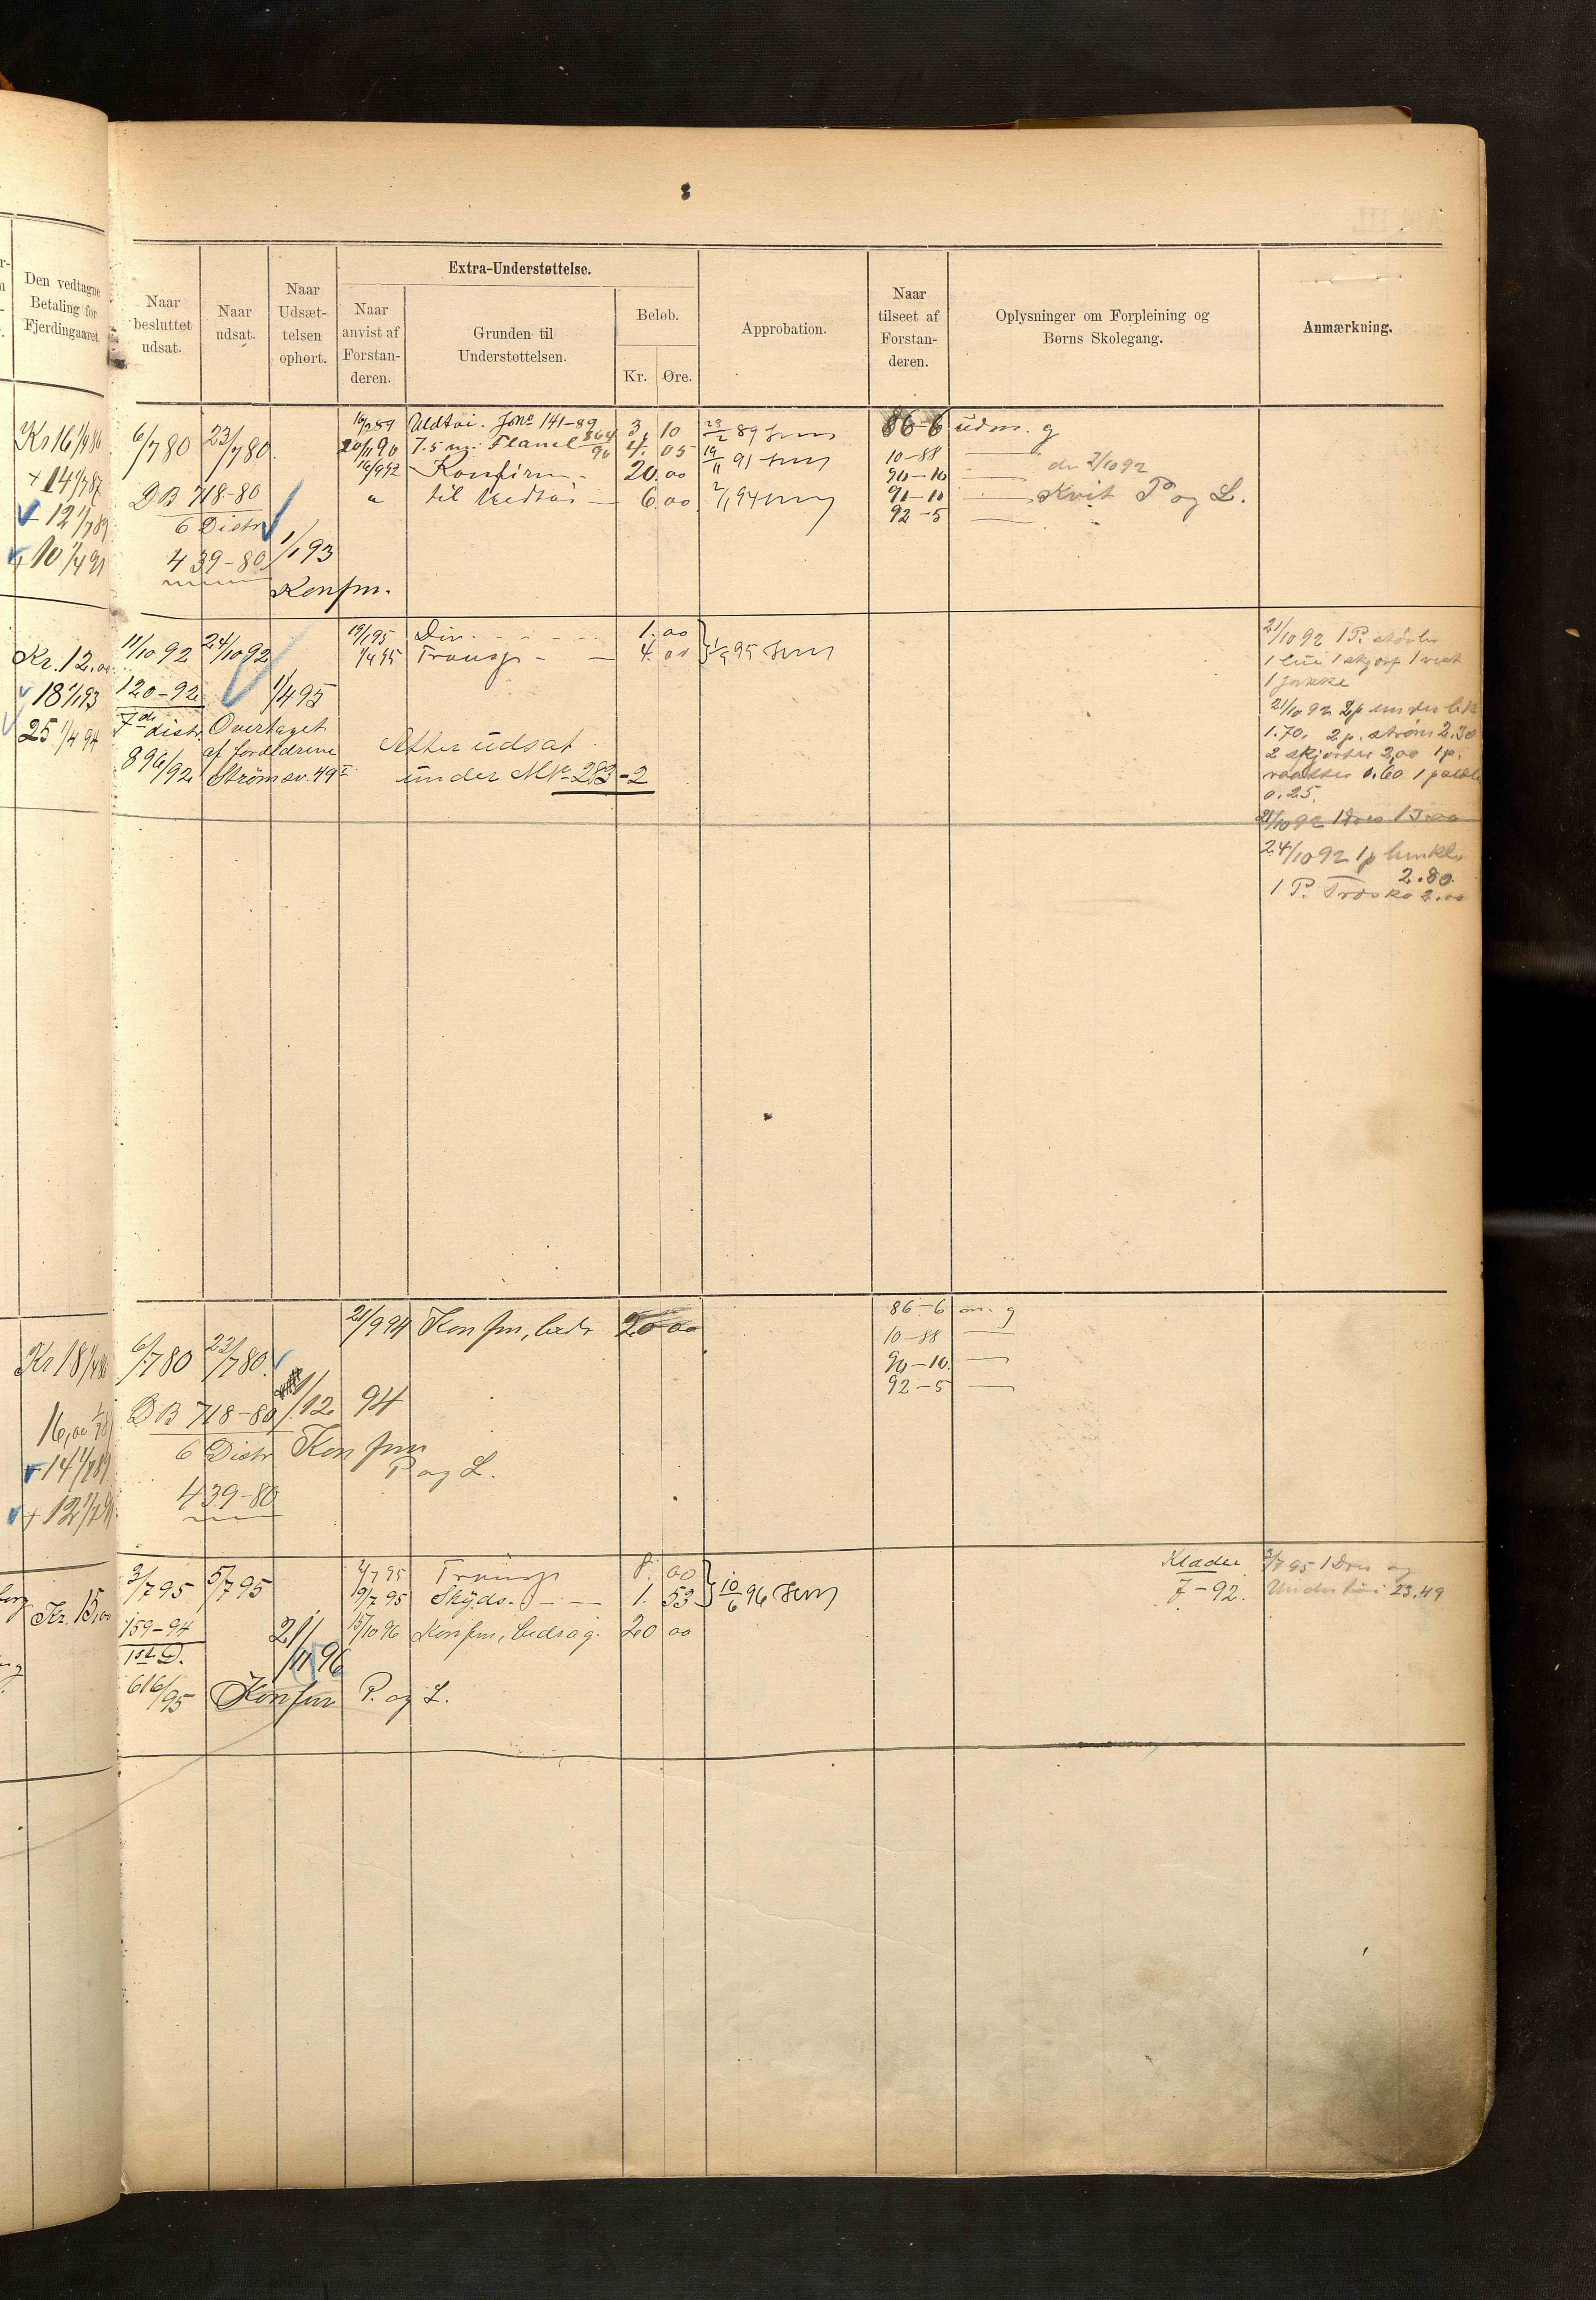 Den vedtagne
Betaling for
Fjerdingaaret.
Naar
besluttet
udsat.
Naar
udsat.
Naar
Udsæt-
telsen
ophørt.
Extra-Understøttelse.
Naar
anvist af
Forstan-
deren.
Grunden til
Understøttelsen.
Beløb.
Kr. Øre.
Approbation.
Naar
tilseet af
Forstan-
deren.
Oplysninger om Forpleining og
Børns Skolegang.
Anmærkning.
Kr 16 1/4 86
+ 14 1/7 87
12 1/7 89
10 1/4 91
6/7 80 23/7 80.
DB 718-80
6 Distr
439-80
1/1 93
Konfm.
16/2 89 Uldtøi. Jno 141-89 3. 10
20/11 90 7.5 m. Flanel 864/90 4. 05
16/9 92 Konfirm. 20. 00
" til 6. 00
23/2 89
19/11 91
2/1 94
86-6 udm. g
10-88
90-10
91-10
92-5
de 2/10 92
Kvit P og L.
Kr. 12.00
18 1/1 93
25 1/4 94
11/10 92 24/10 92
120-92
7de distr.
896/92
1/4 95
Overtaget
af forældrene
Strømsv. 49
19/1 95 Div. 1. 00
1/4 95 Transp 4. 00
Atter udsat
under No 283-2
21/10 92 1 P. støvler
1 lue 1 skjorf 1 vest
1 jakke
21/10 92 2 p underbk
1.70, 2 p. strøm 2.30
2 skjorter 2,00 1 p.
vaatter 0.60 1 p
0.25.
21/10 92
24/10 92 1 p
2.80.
1 P. Træsko 2.00
Kr 18 1/4 86
16,00
14 1/7 89
+ 12 1/7 91
6/7 80 23/7 80.
DB 718-80
6 Distr
439-80
1/12 94
Konfm
P og L.
21/9 94 Konfm, bedr 20 00
86-6 m. g
10-88
90-10.
92-5
Kr. 15,00
3/7 95 5/7 95
159-94
1ste D.
616/95
21/11 96
Konfm P. og L.
2/7 95 Transp 8. 00
19/7 95 Skyds. 1. 53
15/10 96 Konfm, bedrag. 20 00
10/6 96
Klæder
7-92.
3/7 95 1 Dres og
Undertøi 23.49